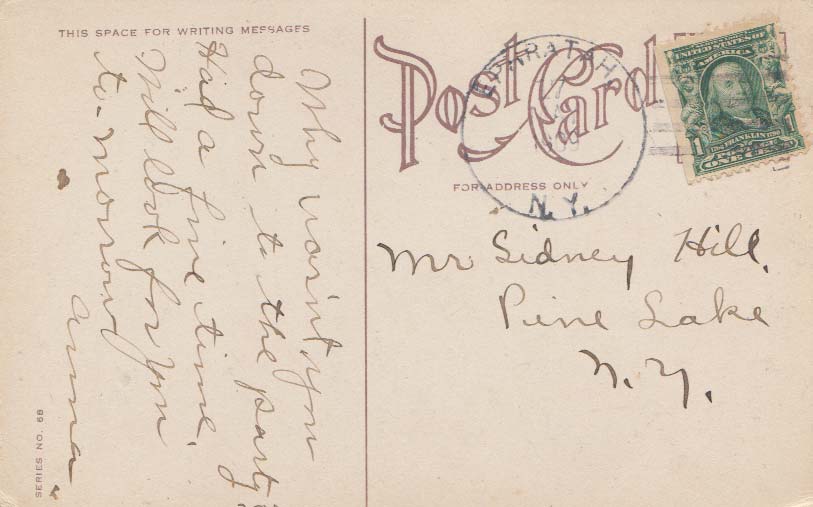 THIS SPACE FOR WRITING MESSAGES
Why wasn't you
down to the party
Had a fine time.
Will look for you
to-morrow
Anna.
SERIES NO. 68
Post Card
FOR ADDRESS ONLY
EPHRATAH
N.Y.
UNITED STATES OF
AMERICA
1 FRANKLIN 1
POSTAGE
ONE CENT
Mr Sidney Hill,
Pine Lake
N.Y.